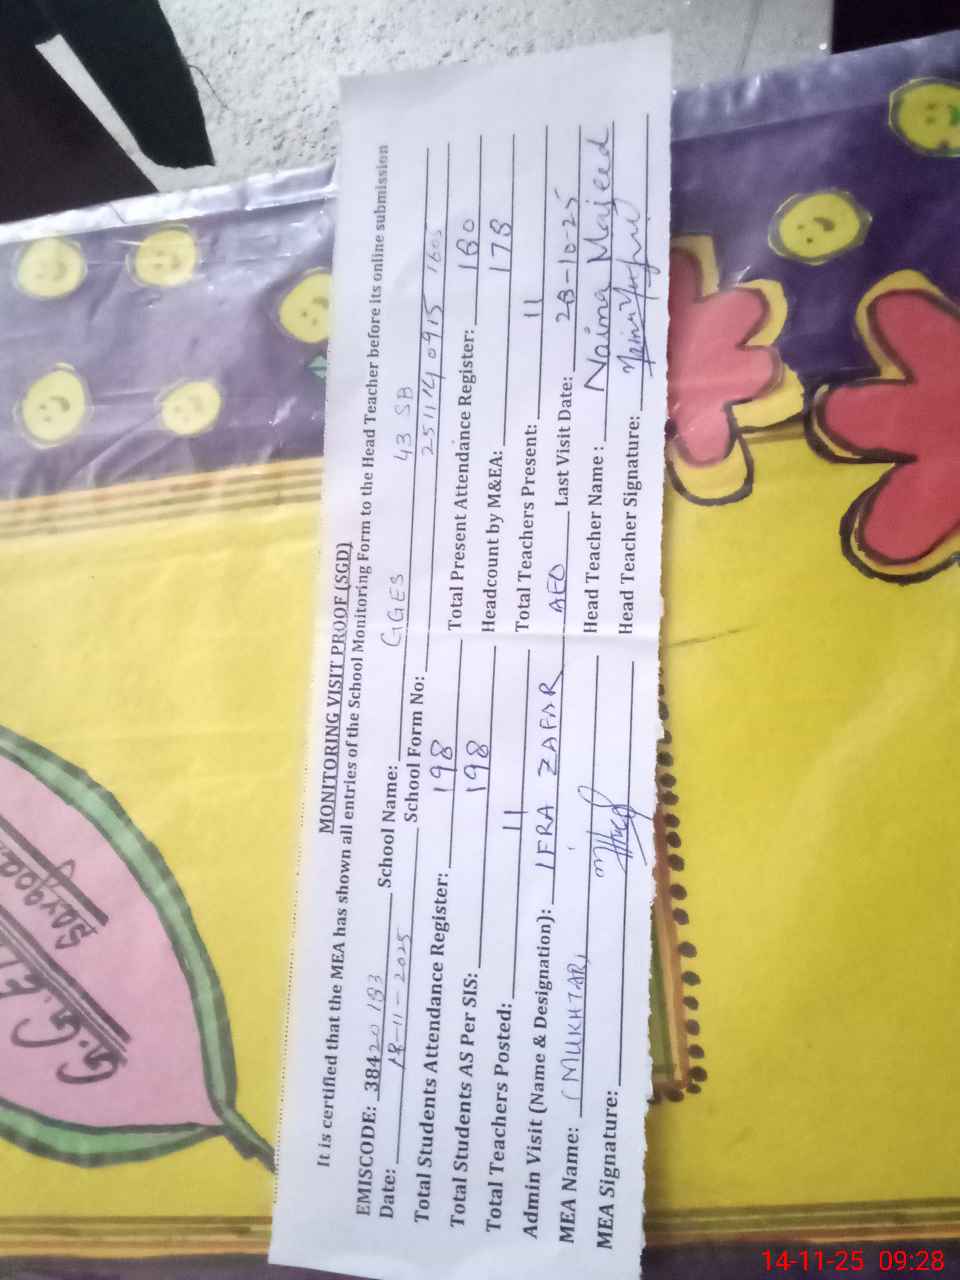 MONITORING VISIT PROOF (SGD)
It is certified that the MEA has shown all entries of the School Monitoring Form to the Head Teacher before its online submission
EMISCODE: 38420183 School Name: GGES 43 SB
Date: 18-11-2025 School Form No: 251114 0915 1605
Total Students Attendance Register: 198 Total Present Attendance Register: 180
Total Students AS Per SIS: 198 Headcount by M&EA: 178
Total Teachers Posted: 11 Total Teachers Present: 11
Admin Visit (Name & Designation): IFRA ZAFAR AEO Last Visit Date: 28-10-25
MEA Name: MUKHTAR Head Teacher Name: Naima Majeed
MEA Signature: Head Teacher Signature:
G.G.E
14-11-25 09:28